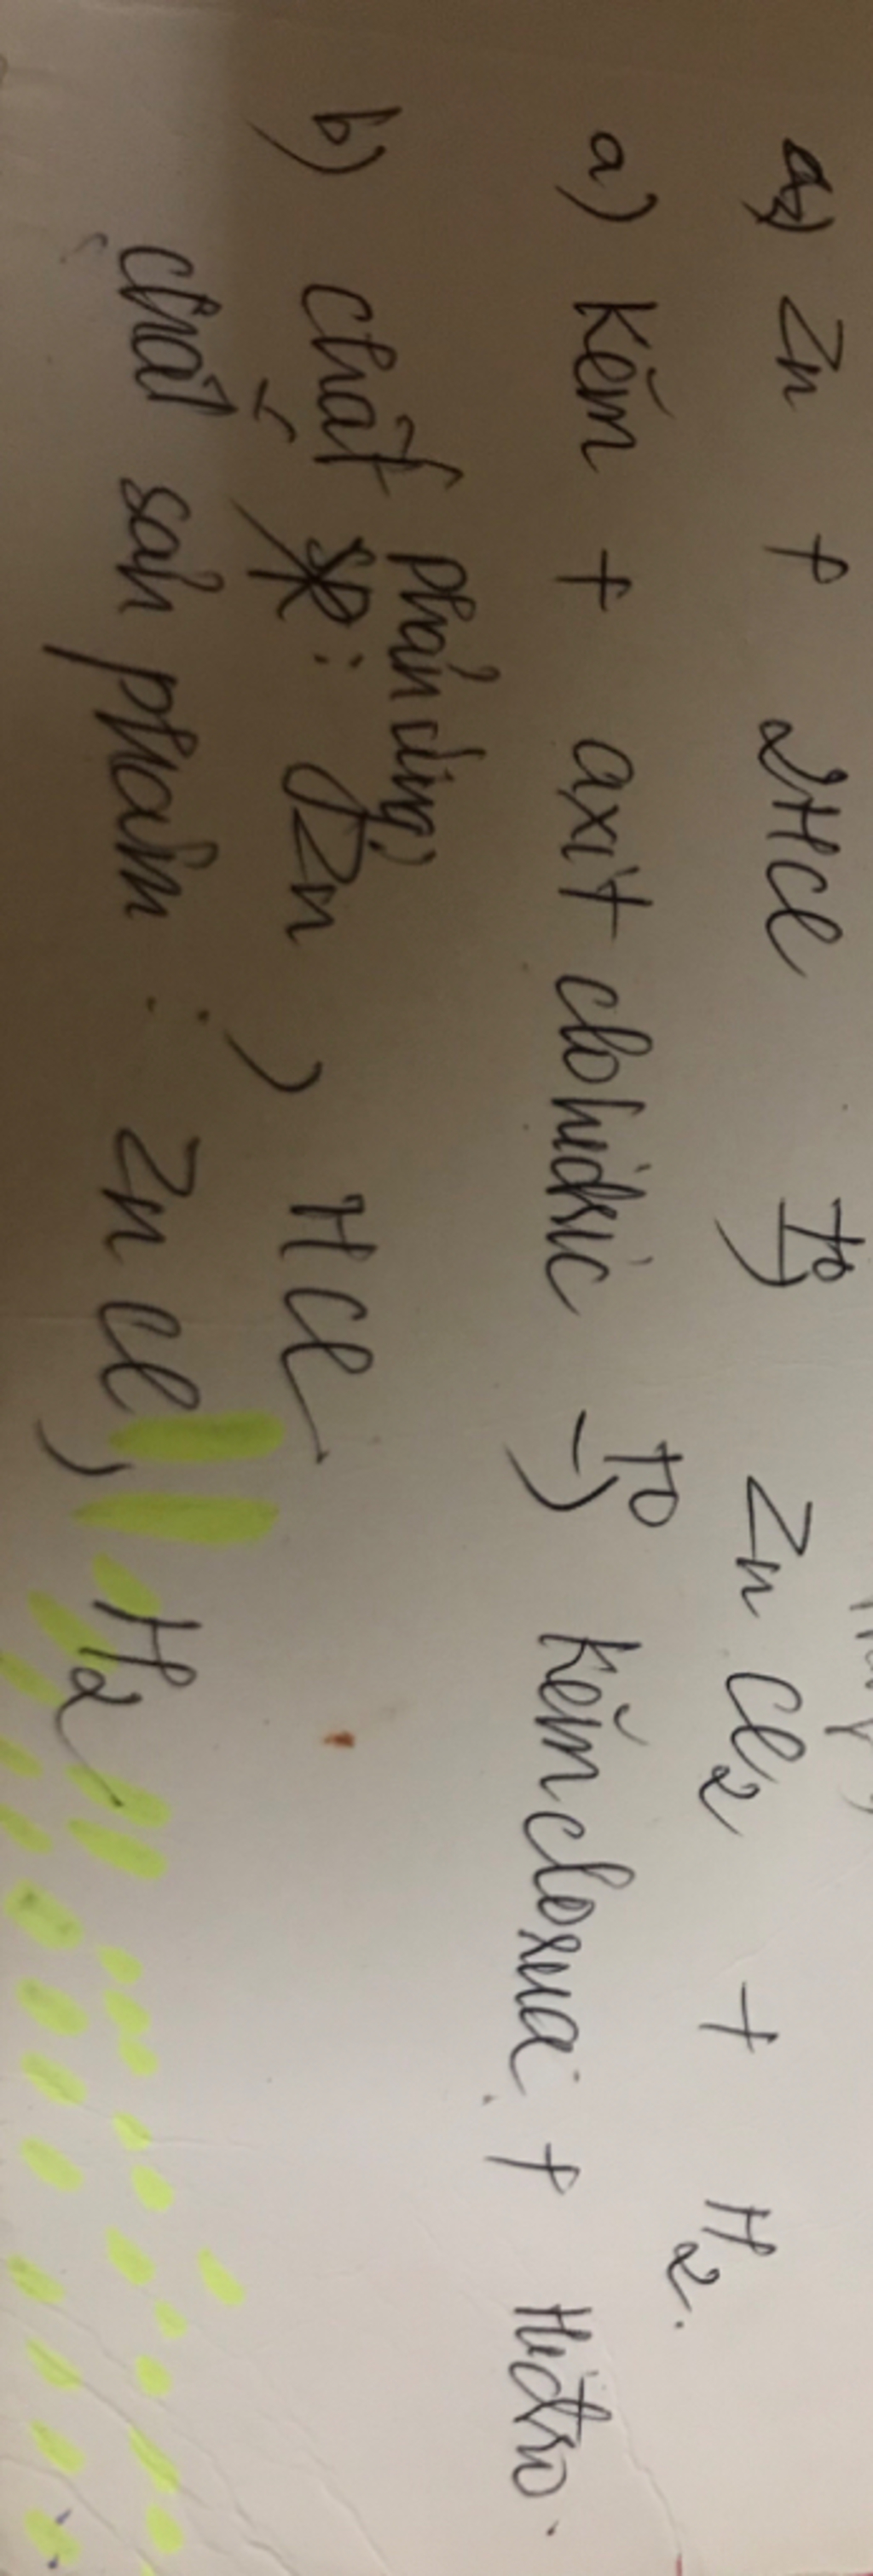 a) Zn + 2HCl t° → ZnCl2 + H2.
a) Kẽm + axit clohidric t° → kẽm clorua + Hidro.
phản ứng
b) chất : Zn , HCl
chất sản phẩm : ZnCl , H2